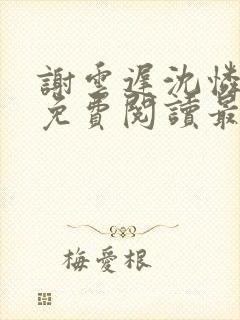 謝雲遲沈憐
免費閱讀最
梅愛根